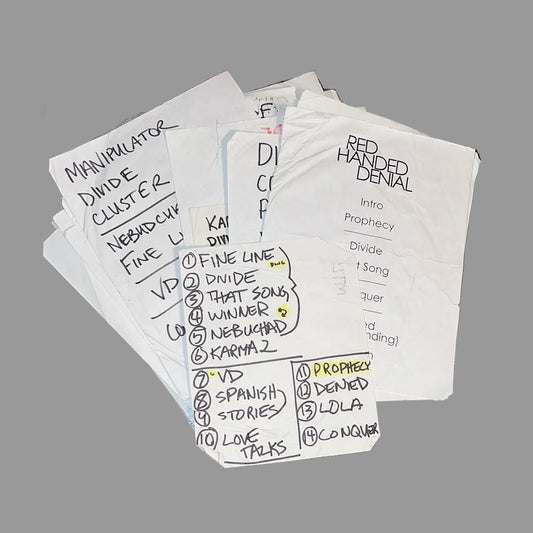 MANIPULATOR
DIVIDE
CLUSTER
FINE
VD
F
DI
RED
HANDED
DENIAL
Intro
Prophecy
Divide
Song
① FINE LINE
② DIVIDE
③ THAT SONG
④ WINNER
⑤ NEBUCHAD
⑥ KARMA 2
⑦ VD
⑧ SPANISH
⑨ STORIES
⑩ LOVE
TALKS
⑪ PROPHECY
⑫ DENIED
⑬ LOLA
⑭ CONQUER